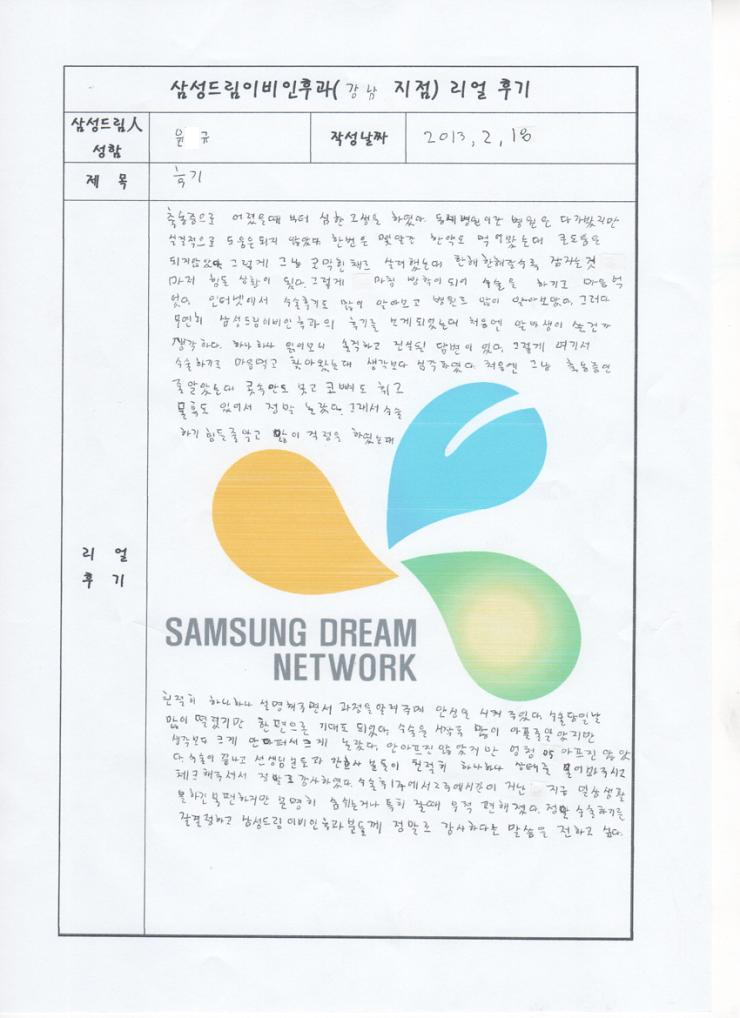 삼성드림이비인후과(강남 지점) 리얼 후기
삼성드림人
성함
윤 규
작성날짜
2013, 2, 18
제 목
후기
축농증으로 어렸을때 부터 심한 고생을 하였다. 동네병원이란 병원은 다가봤지만
성공적으로 도움은되지 않았다. 한번은 몇달간 한약도 먹어봤는데 큰도움은
되지않았다. 그렇게 그냥 코막힌채로 살려했는데 한해한해갈수록 잠자는것
마저 힘든 상황이 됬다. 그렇게 마침 방학이 되어 수술을 하기로 마음먹
었다. 인터넷에서 수술후기도 많이 알아보고 병원도 많이 알아보았다. 그러다
우연히 삼성드림이비인후과의 후기를 보게되었는데 처음엔 알바생이 쓴건가
생각하다. 하나하나 읽어보니 솔직하고 진실된 답변이 있다. 그렇게 여기서
수술하기로 마음먹고 찾아왔는데 생각보다 심각하였다. 처음엔 그냥 축농증인
줄알았는데 콧속안도 붓고 코뼈도 휘고
물혹도 있어서 정말 놀랐다. 그래서 수술
하기 힘들줄알고 많이 걱정을 하였는데
리 얼
후 기
SAMSUNG DREAM
NETWORK
친절히 하나하나 설명해주면서 과정을알려주며 안심을 시켜 주었다. 수술당일날
많이 떨렸지만 한편으론 기대도 되었다. 수술을 많이 아플줄알았지만
생각보다 크게 안아퍼서 크게 놀랐다. 안아프진 않았지만 엄청 아프진 않았
다. 수술이 끝나고 선생님분들과 간호사 분들이 친절히 하나하나 상태를 물어봐주시고
체크해주셔서 정말로 감사하였다. 수술후 1주에서 2주에시간이 지난 지금 일상생활
불편하지만 분명히 숨쉬는거나 특히 잘때 무척 편해졌다. 정말 수술하기를
잘결정하고 삼성드림이비인후과분들께 정말로 감사하다는 말씀을 전하고 싶다.